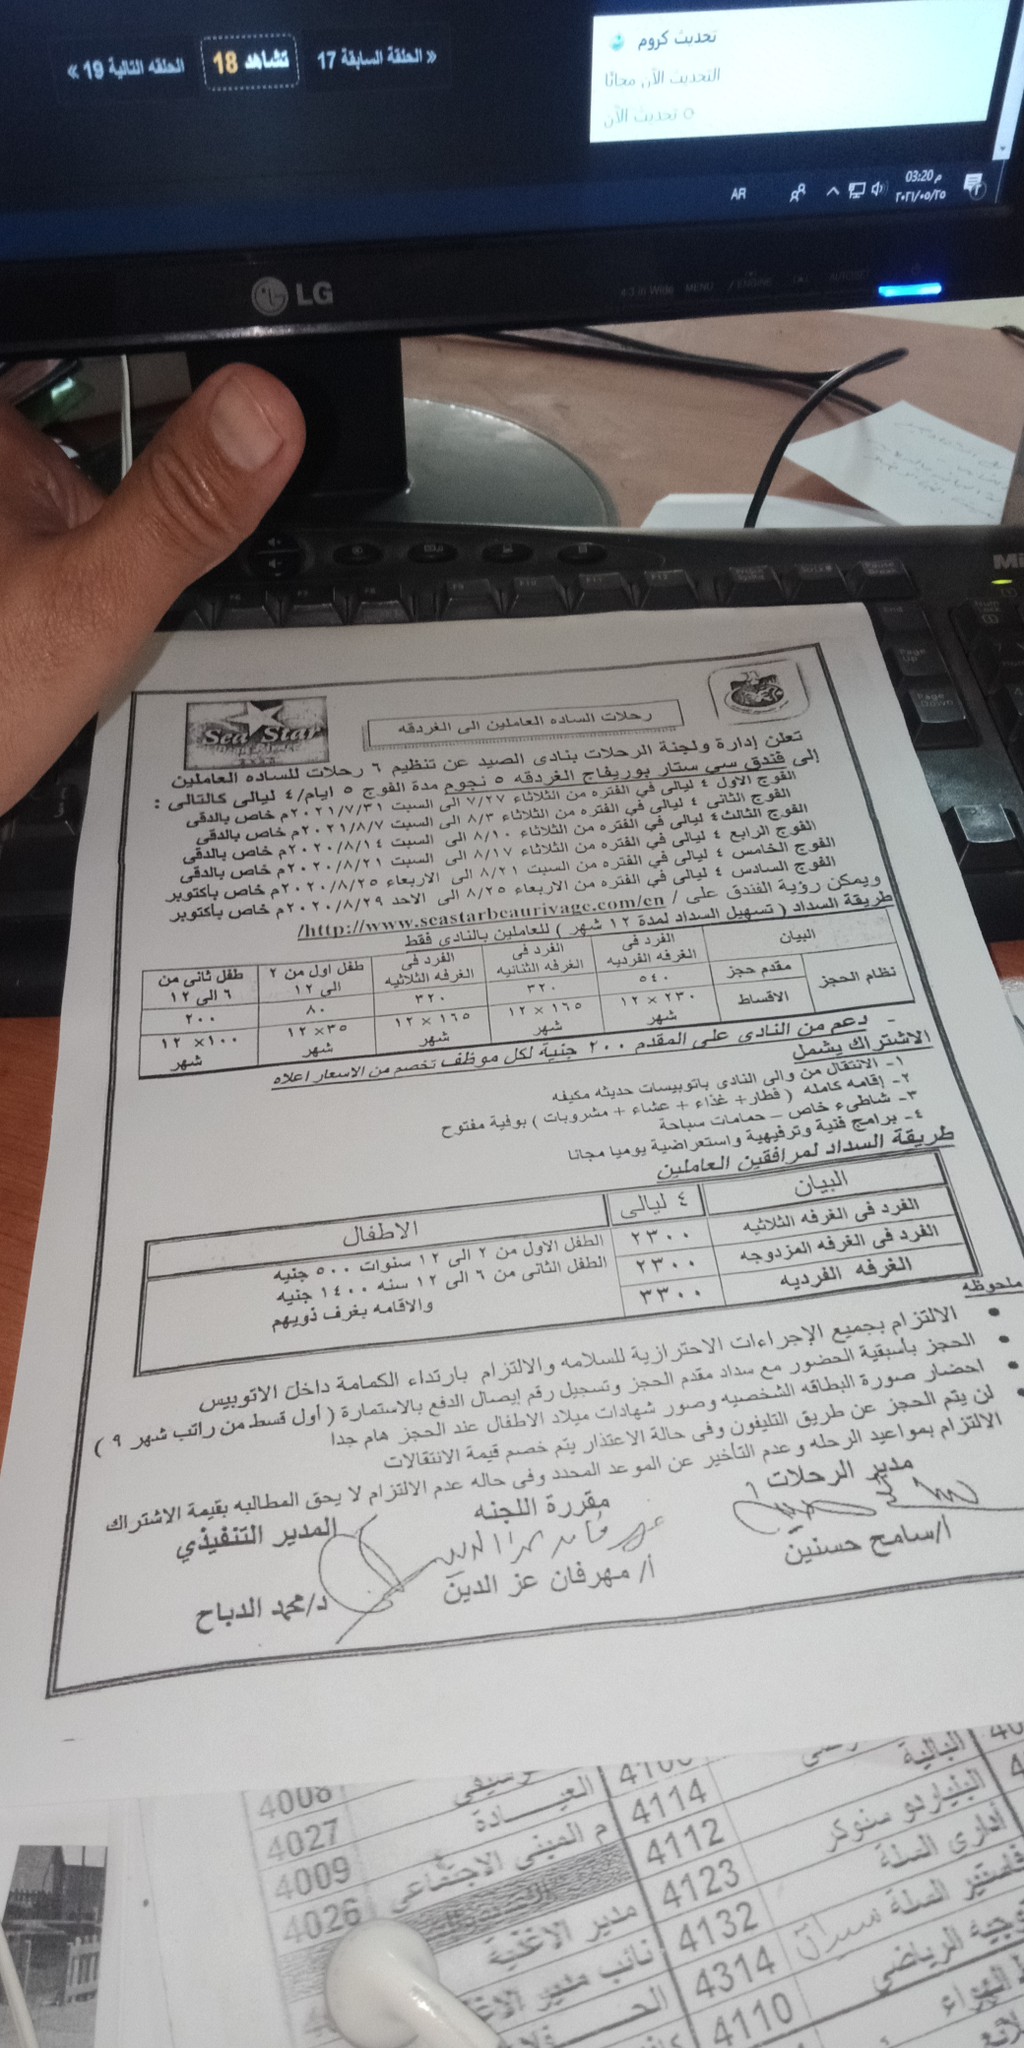 « الحلقة السابقة 17
تشاهد 18
الحلقه التالية 19 »
تحديث كروم
التحديث الآن مجانًا
تحديث الآن
AR
03:20 م
٢٠٢١/٠٥/٢٥
LG
MENU
Sea Star
رحلات الساده العاملين الى الغردقه
تعلن إدارة ولجنة الرحلات بنادى الصيد عن تنظيم ٦ رحلات للساده العاملين
إلى فندق سي ستار بوريفاج الغردقه ٥ نجوم مدة الفوج ٥ ايام/٤ ليالى كالتالى :
الفوج الاول ٤ ليالى في الفتره من الثلاثاء ٧/٢٧ الى السبت ٢٠٢١/٧/٣١م خاص بالدقى
الفوج الثانى ٤ ليالى في الفتره من الثلاثاء ٨/٣ الى السبت ٢٠٢١/٨/٧م خاص بالدقى
الفوج الثالث٤ ليالى في الفتره من الثلاثاء ٨/١٠ الى السبت ٢٠٢٠/٨/١٤م خاص بالدقى
الفوج الرابع ٤ ليالى في الفتره من الثلاثاء ٨/١٧ الى السبت ٢٠٢٠/٨/٢١م خاص بالدقى
الفوج الخامس ٤ ليالى في الفتره من السبت ٨/٢١ الى الاربعاء ٢٠٢٠/٨/٢٥م خاص بأكتوبر
الفوج السادس ٤ ليالى في الفتره من الاربعاء ٨/٢٥ الى الاحد ٢٠٢٠/٨/٢٩م خاص بأكتوبر
ويمكن رؤية الفندق على / http://www.seastarbeaurivage.com/en/
طريقة السداد ( تسهيل السداد لمدة ١٢ شهر ) للعاملين بالنادى فقط
البيان الفرد فى الغرفه الفرديه الفرد فى الغرفه الثنائيه الفرد فى الغرفه الثلاثيه طفل اول من ٢ الى ١٢ طفل ثانى من ٦ الى ١٢
نظام الحجز مقدم حجز ٥٤٠ ٣٢٠ ٣٢٠ ٨٠ ٢٠٠
الاقساط ٢٣٠ × ١٢ شهر ١٦٥ × ١٢ شهر ١٦٥ × ١٢ شهر ٣٥× ١٢ شهر ١٠٠× ١٢ شهر
- دعم من النادى على المقدم ٢٠٠ جنية لكل موظف تخصم من الاسعار اعلاه
الاشتراك يشمل
١- الانتقال من والى النادى باتوبيسات حديثه مكيفه
٢- إقامه كامله ( فطار+ غذاء + عشاء + مشروبات ) بوفية مفتوح
٣- شاطىء خاص – حمامات سباحة
٤- برامج فنية وترفيهية واستعراضية يوميا مجانا
طريقة السداد لمرافقين العاملين
البيان ٤ ليالى الاطفال
الفرد فى الغرفه الثلاثيه ٢٣٠٠ الطفل الاول من ٢ الى ١٢ سنوات ٥٠٠ جنيه
الفرد فى الغرفه المزدوجه ٢٣٠٠ الطفل الثانى من ٦ الى ١٢ سنه ١٤٠٠ جنيه
الغرفه الفرديه ٣٣٠٠ والاقامه بغرف ذويهم
ملحوظه
• الالتزام بجميع الإجراءات الاحترازية للسلامه والالتزام بارتداء الكمامة داخل الاتوبيس
• الحجز بأسبقية الحضور مع سداد مقدم الحجز وتسجيل رقم إيصال الدفع بالاستمارة ( أول قسط من راتب شهر ٩ )
• احضار صورة البطاقه الشخصيه وصور شهادات ميلاد الاطفال عند الحجز هام جدا
• لن يتم الحجز عن طريق التليفون وفى حالة الاعتذار يتم خصم قيمة الانتقالات
الالتزام بمواعيد الرحله وعدم التأخير عن الموعد المحدد وفى حاله عدم الالتزام لا يحق المطالبه بقيمة الاشتراك
مدير الرحلات مقررة اللجنه المدير التنفيذي
أ/سامح حسنين أ/ مهرفان عز الدين د/محمد الدباح
4008
4027 العيـادة
4009 م المبنى الاجتماعى
4026
مدير الاغذية
4114 البالية
4112 البلياردو سنوكر
4123 ادارى السلة
4132
4314
4110